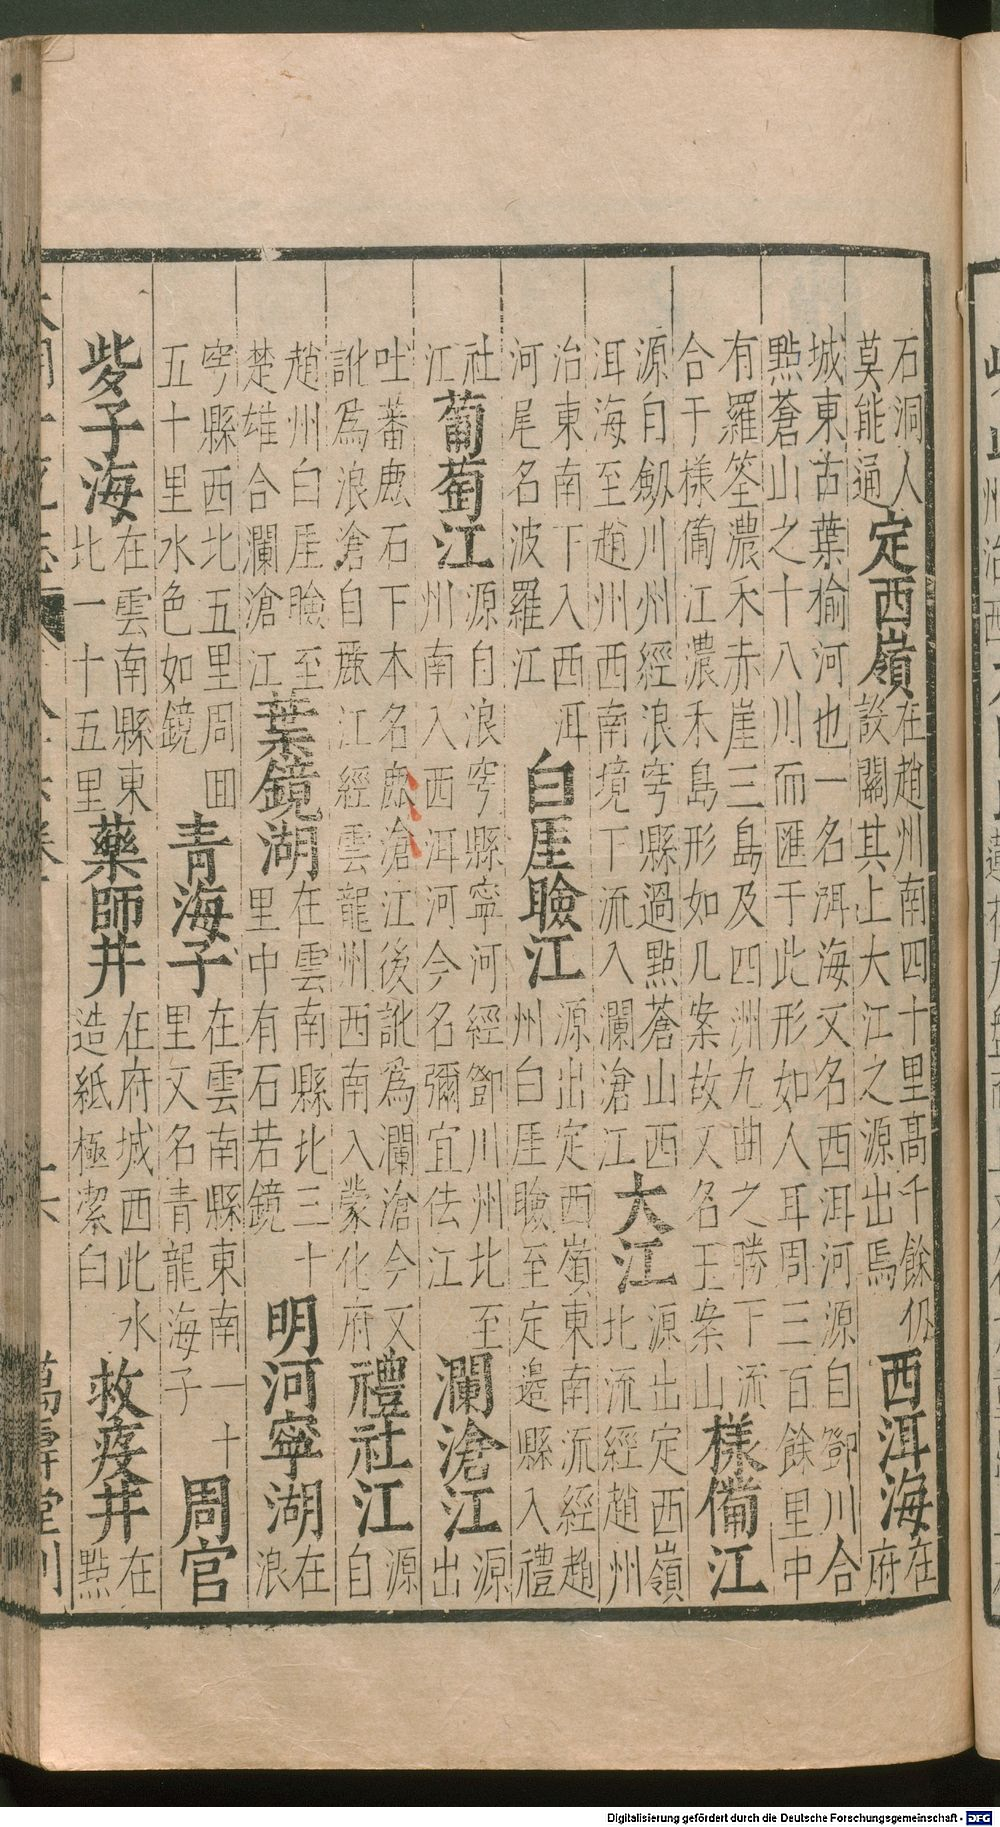 石洞人莫能通定西嶺在趙州南四十里高千餘仭設關其上大江之源出焉西洱海在府
城東古葉榆河也一名洱海又名西洱河源自鄧川合點蒼山之十八川而匯于此形如人耳周三百餘里中
有羅筌濃禾赤崖三島及四洲九曲之勝下流合于樣備江濃禾島形如几案故又名玉案山樣備江
源自劔川州經浪穹縣過點蒼山西洱海至趙州西南境下流入瀾滄江大江源出定西嶺北流經趙州
治東南下入西洱河尾名波羅江白厓瞼江源出定西嶺東南流經趙州白厓瞼至定邊縣入禮
社江葡萄江源自浪穹縣寧河經鄧川州北至州南入西洱河今名彌宜佉江瀾滄江源出
吐蕃鹿石下本名鹿滄江後訛爲瀾滄今又訛爲浪滄自麗江經雲龍州西南入蒙化府禮社江源自
趙州白厓瞼至楚雄合瀾滄江葉鏡湖在雲南縣北三十里中有石若鏡明河寧湖在浪
穹縣西北五里周回五十里水色如鏡青海子在雲南縣東南一十里又名青龍海子周官
子海在雲南縣東北一十五里藥師井在府城西此水造紙極潔白救疫井在點
萬壽堂刊
Digitalisierung gefördert durch die Deutsche Forschungsgemeinschaft - DFG